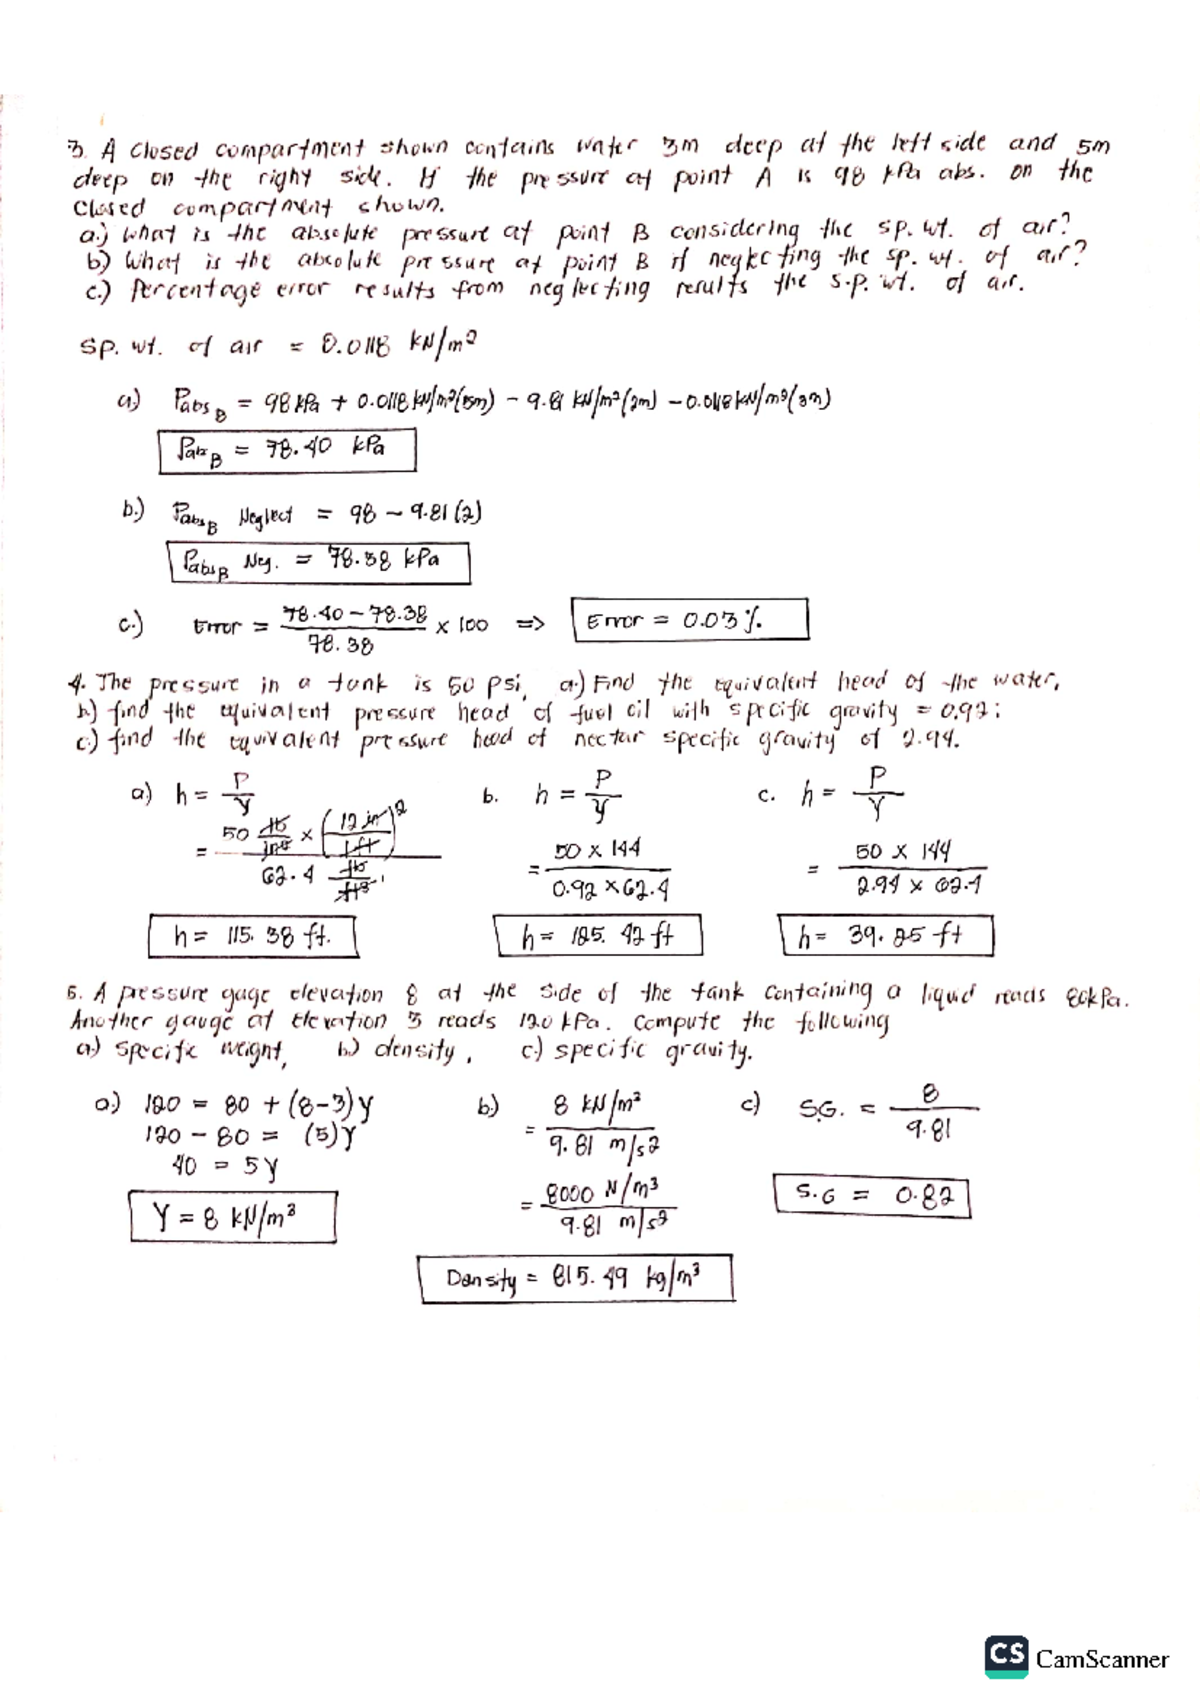 3. A closed compartment shown contains water 3m deep at the left side and 5m
deep on the right side. If the pressure at point A is 98 kPa abs. on the
closed compartment shown.
a.) What is the absolute pressure at point B considering the sp. wt. of air?
b) What is the absolute pressure at point B if neglecting the sp. wt. of air?
c.) Percentage error results from neglecting results the s.p. wt. of air.
sp. wt. of air = 0.0118 kN/m3
a) Pabs B = 98 kPa + 0.0118 kN/m3(5m) - 9.81 kN/m3(2m) - 0.0118 kN/m3(3m)
Pabs B = 78.40 kPa
b.) Pabs B Neglect = 98 - 9.81 (2)
Pabs B Neg. = 78.38 kPa
c.) Error = 78.40 - 78.38 / 78.38 x 100 => Error = 0.03 %.
4. The pressure in a tank is 50 psi, a.) Find the equivalent head of the water,
b) find the equivalent pressure head of fuel oil with specific gravity = 0.92;
c.) find the equivalent pressure head of nectar specific gravity of 2.94.
a) h = P/γ b. h = P/γ c. h = P/γ
= 50 lb/in2 x (12 in/1 ft)2 / 62.4 lb/ft3 = 50 x 144 / 0.92 x 62.4 = 50 x 144 / 2.94 x 62.4
h = 115.38 ft. h = 125.42 ft h = 39.25 ft
5. A pressure gage elevation 8 at the side of the tank containing a liquid reads 80kPa.
Another gauge at elevation 3 reads 120 kPa. Compute the following
a.) specific weight, b.) density, c.) specific gravity.
a.) 120 = 80 + (8-3)γ b.) = 8 kN/m3 / 9.81 m/s2 c) S.G. = 8 / 9.81
120 - 80 = (5)γ
40 = 5γ = 8000 N/m3 / 9.81 m/s2 S.G = 0.82
γ = 8 kN/m3
Density = 815.49 kg/m3
CS CamScanner